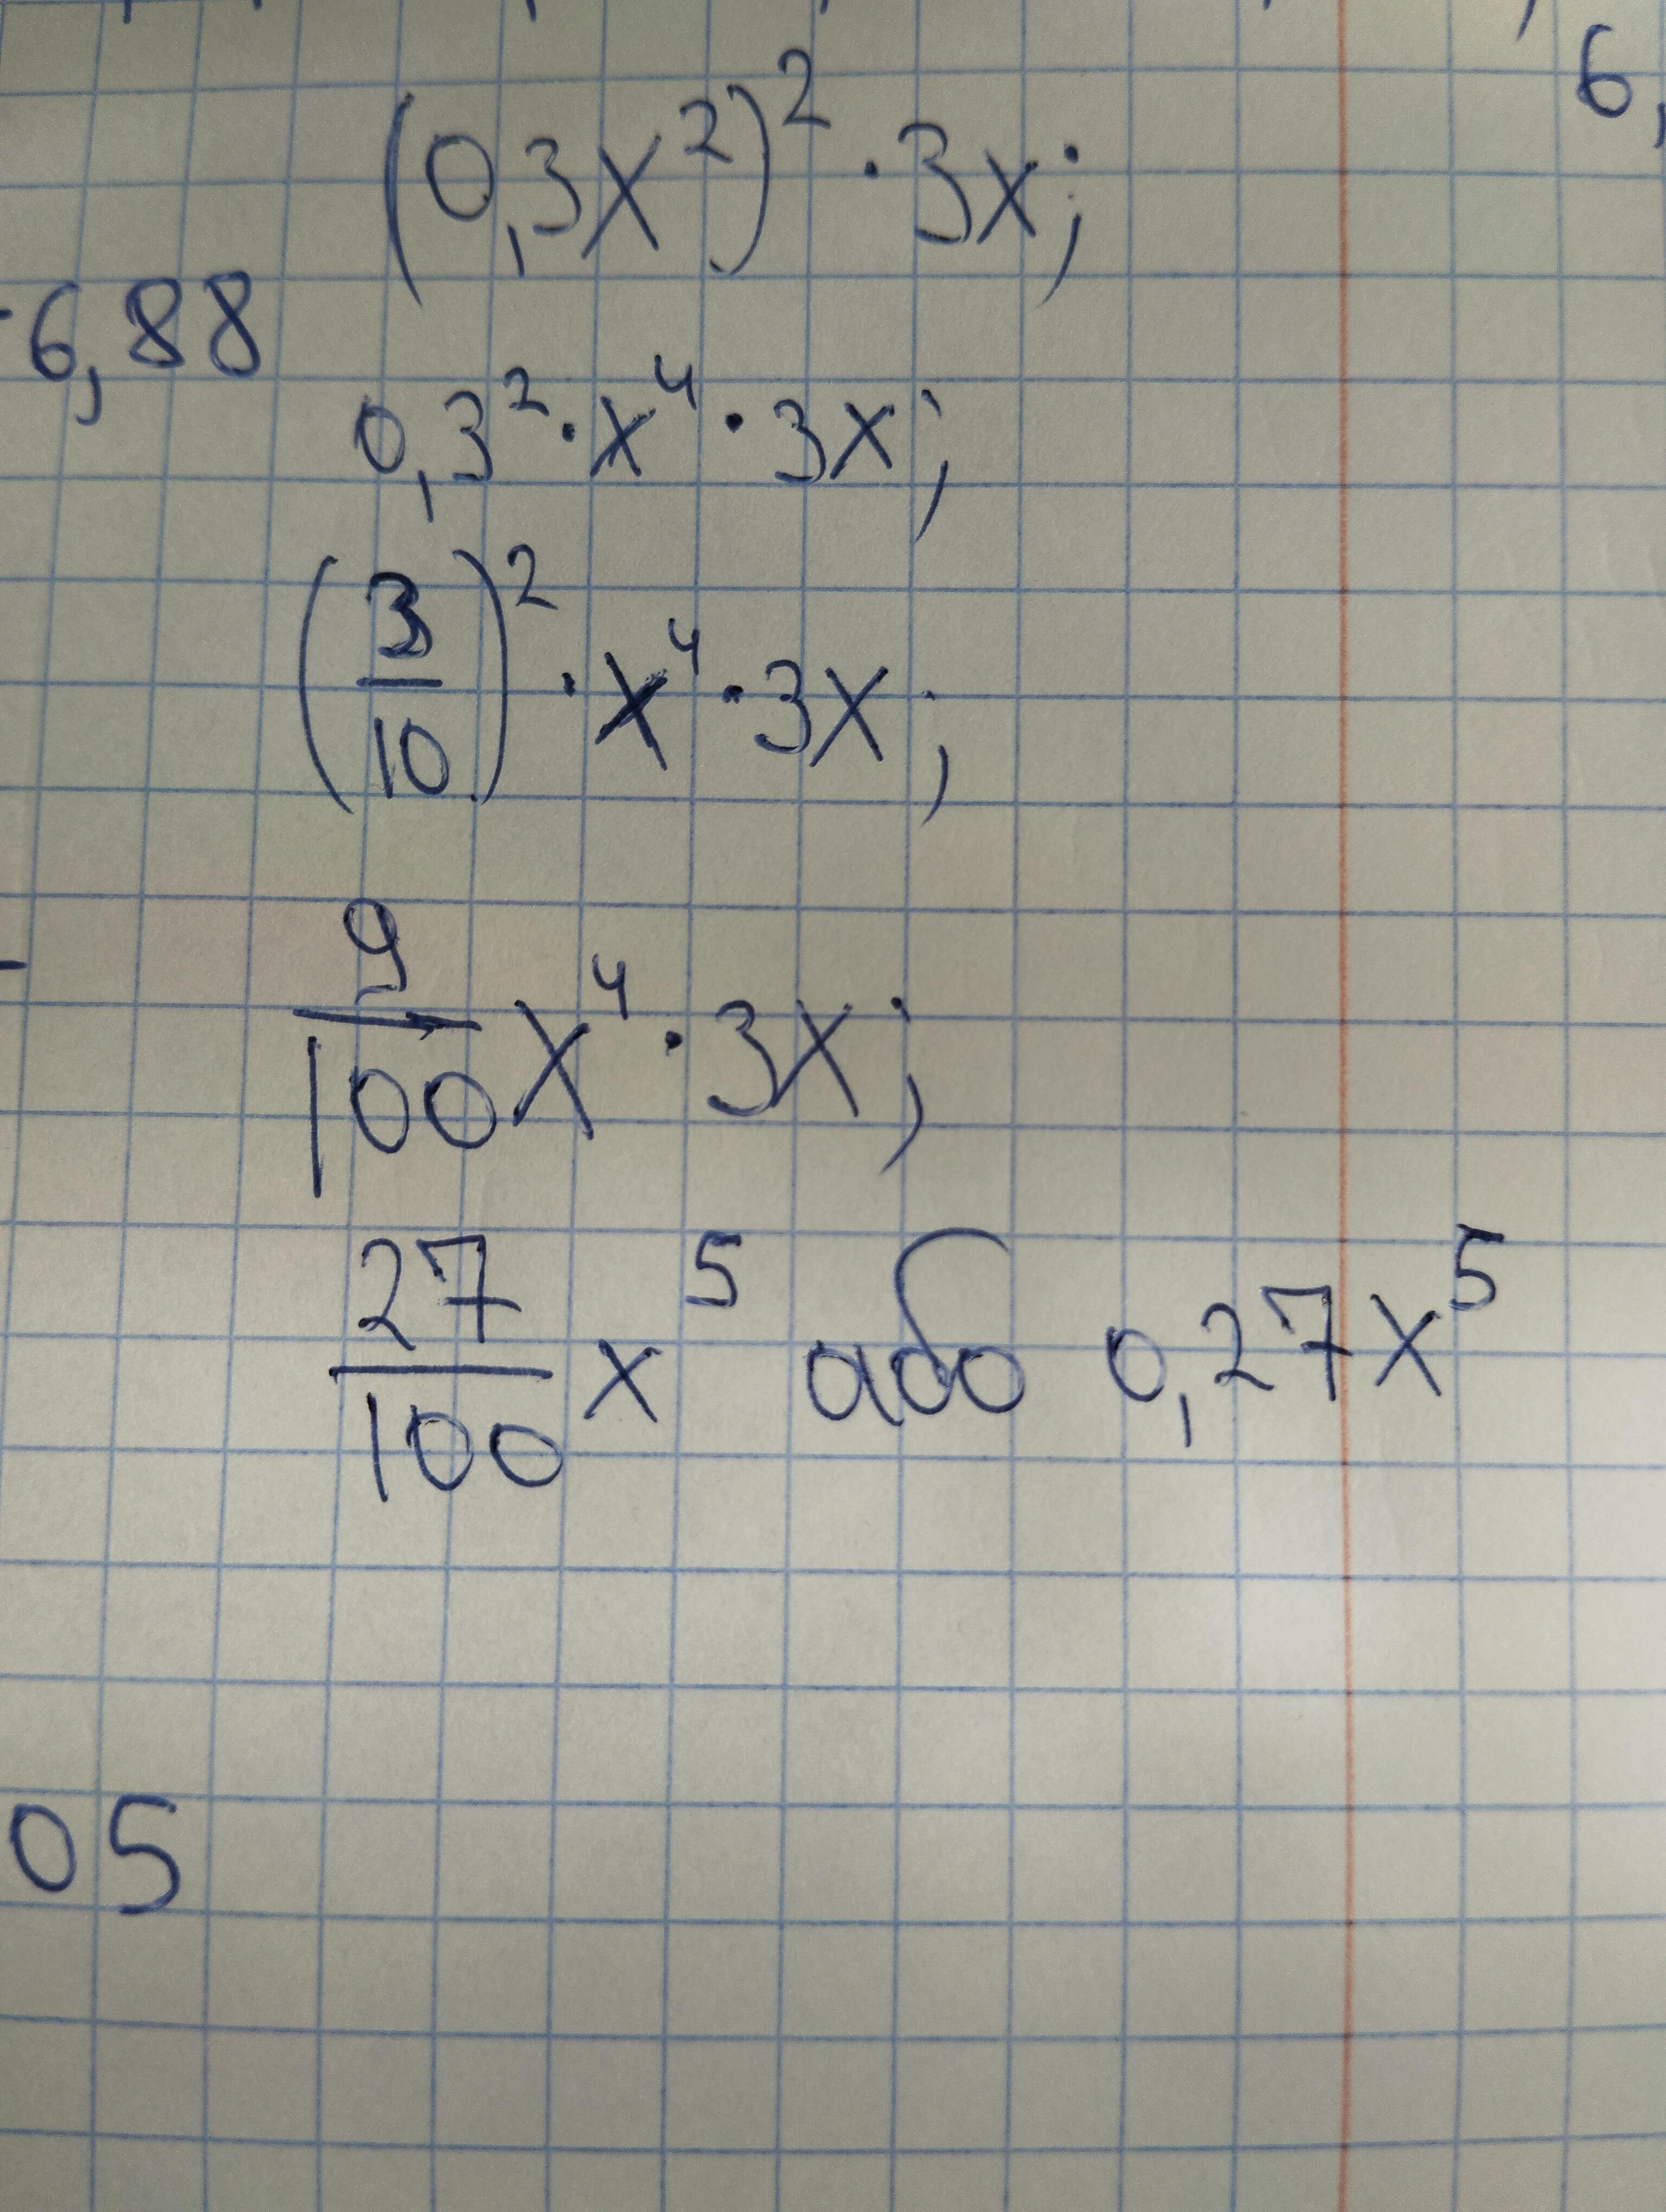 6,
(0,3x²)² · 3x;
6,88
0,3² · x⁴ · 3x;
(3/10)² · x⁴ · 3x;
9/100 x⁴ · 3x;
27/100 x⁵ або 0,27x⁵
05